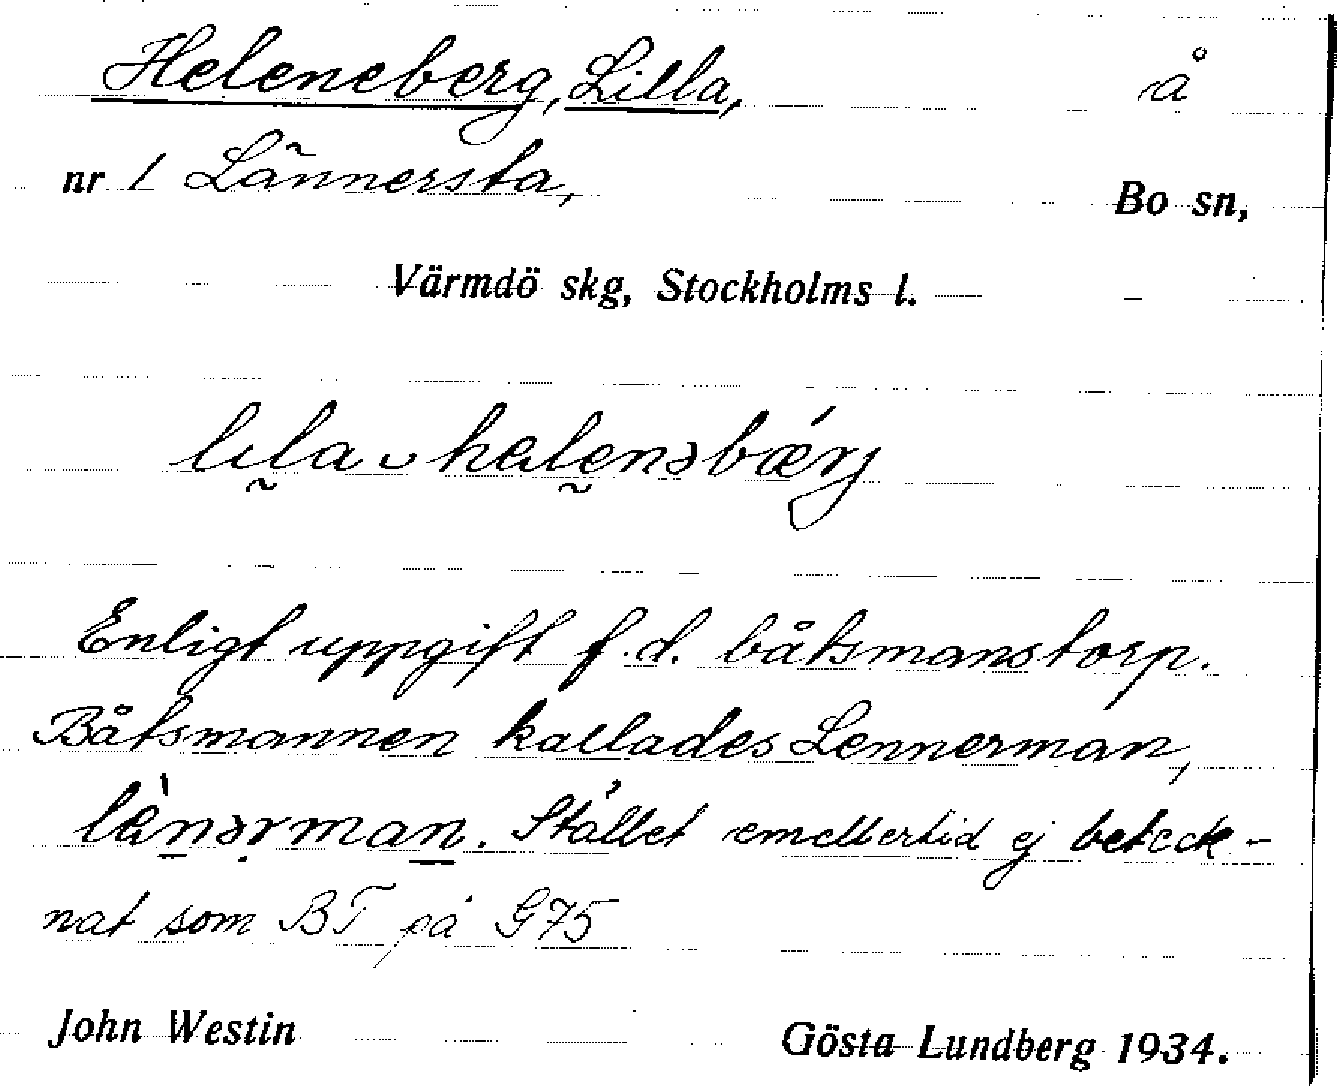 Heleneberg, Lilla, å
nr 1 Lännersta, Bo sn,
Värmdö skg, Stockholms l.
lıla ᴗ helenəbærj
Enligt uppgift f.d. båtsmanstorp.
Båtsmannen kallades Lennerman,
lènərman. Stället emellertid ej beteck-
nat som BT på G75
John Westin Gösta Lundberg 1934.